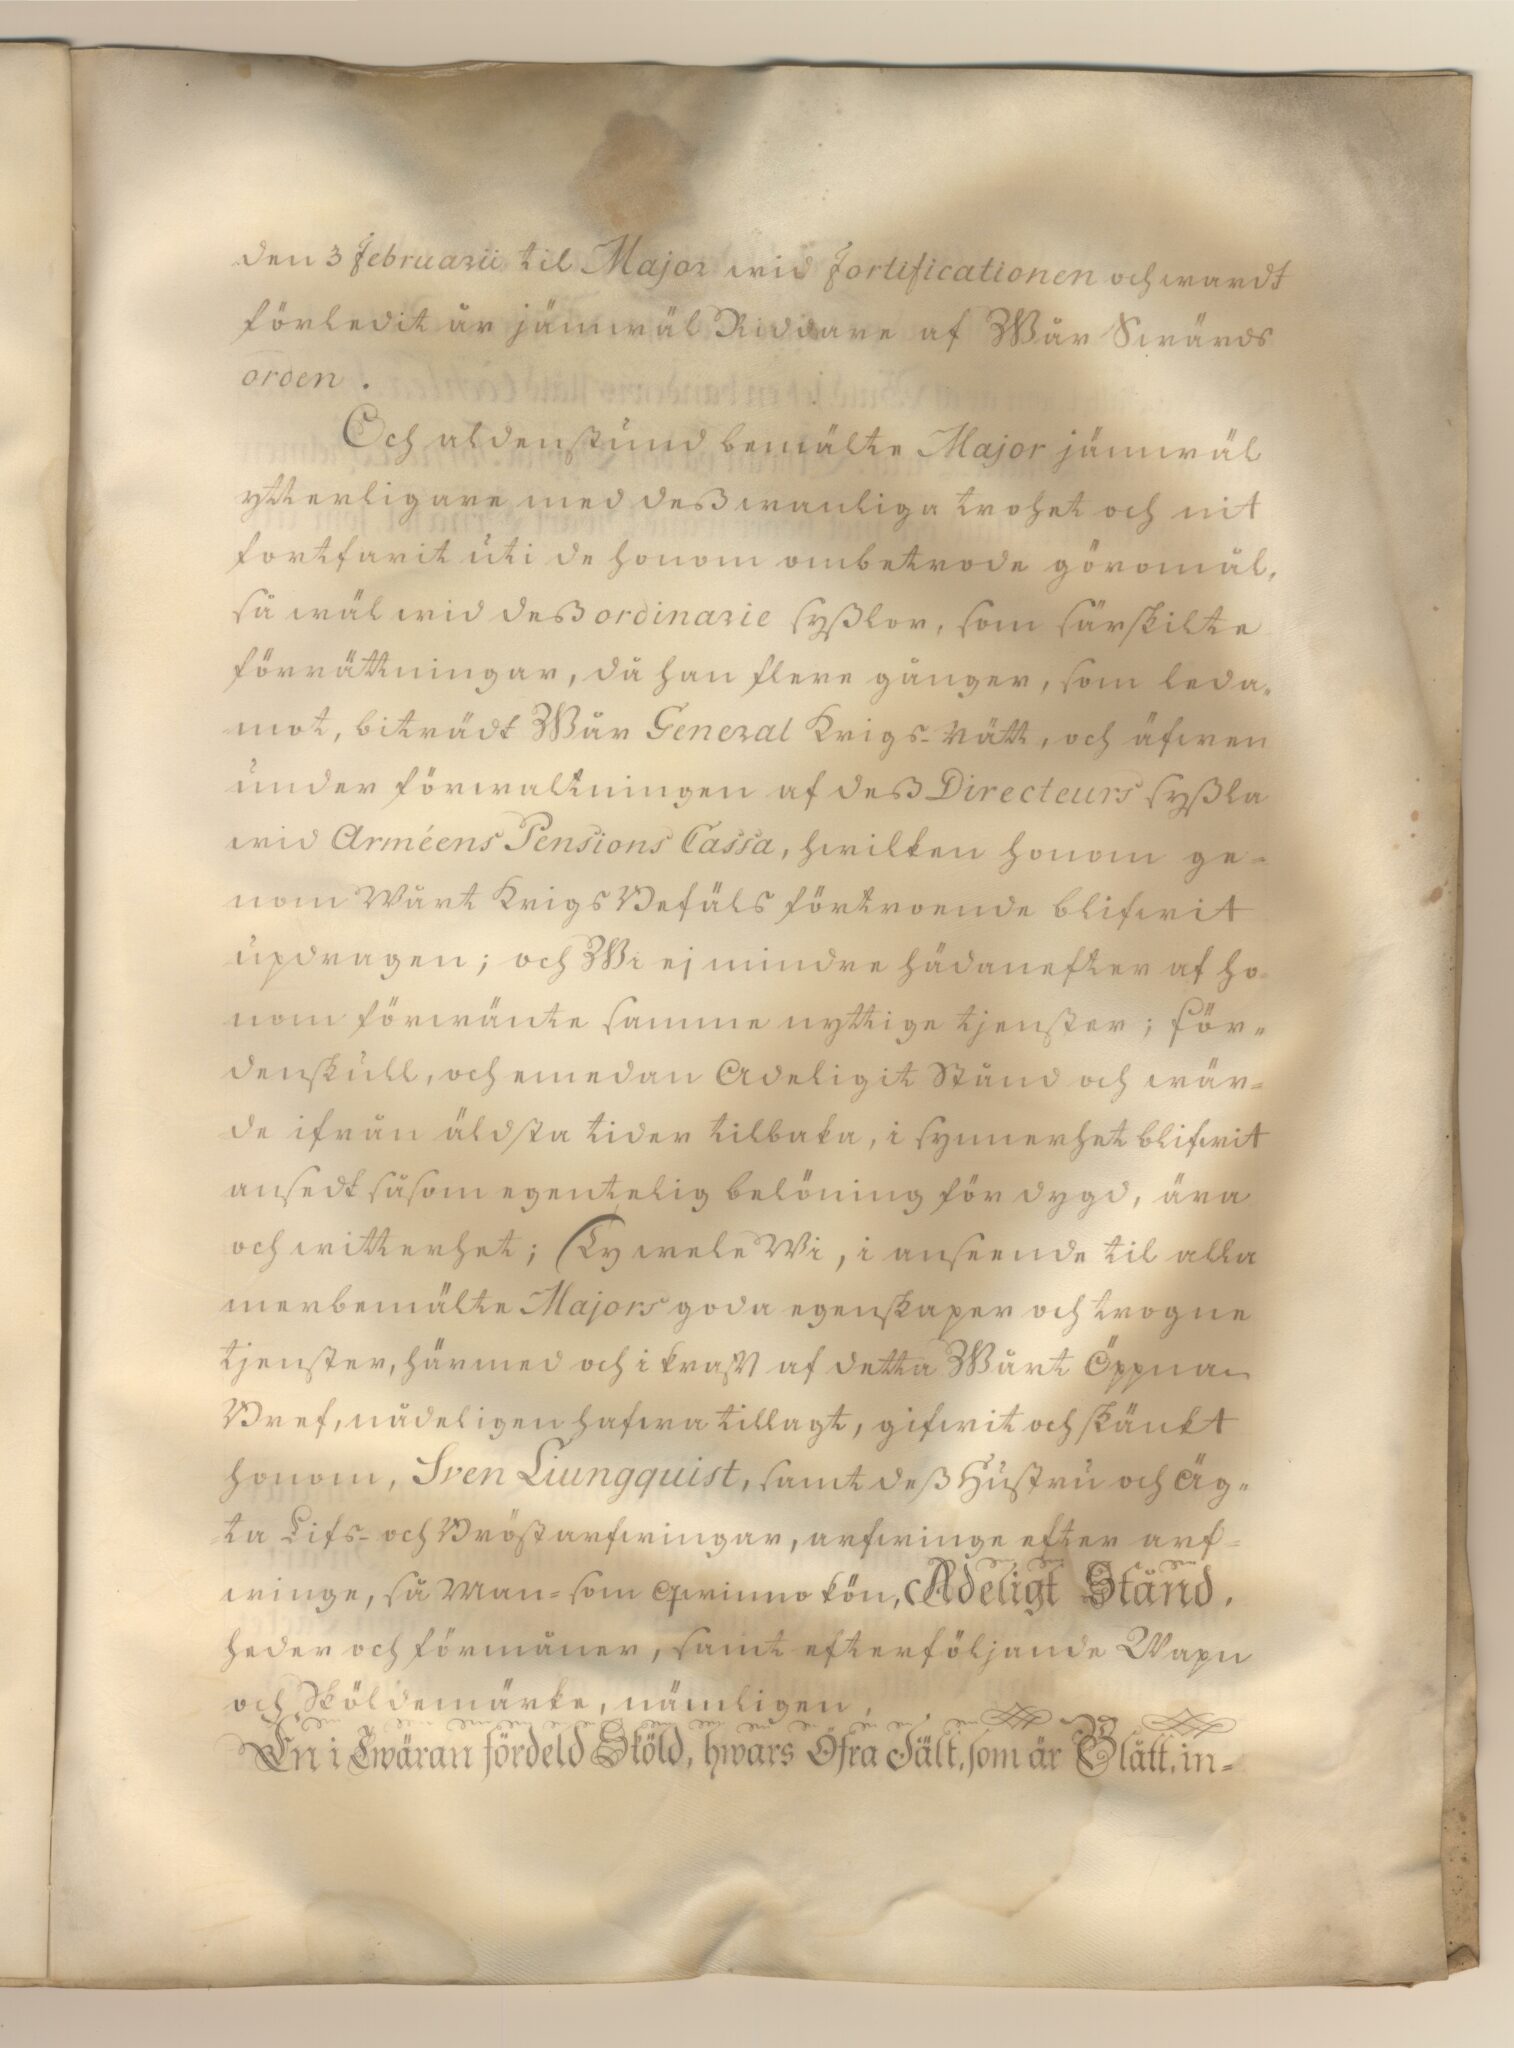 den 3 Februarii til Major wid Fortificationen och wardt
förledit år jämwäl Riddare af Wår Swärds
orden.
Och aldenstund bemälte Major jämwäl
ytterligare med deß wanliga trohet och nit
fortfarit uti de honom ombetrode göromål,
så wäl wid deß ordinarie syßlor, som särskilte
förrättningar, då han flere gånger, som leda-
mot, biträdt Wår General Krigs-Rätt, och äfwen
under förwaltningen af deß Directeurs syßla
wid Arméens Pensions Cassa, hwilken honom ge-
nom Wårt Krigs Befäls förtroende blifwit
updragen; och Wi ej mindre hädanefter af ho-
nom förwänte samme nyttige tjenster; För-
denskull, och emedan Adeligit Stånd och wär-
de ifrån äldsta tider tilbaka, i synnerhet blifwit
ansedt såsom egentelig belöning för dygd, ära
och witterhet; Ty wele Wi, i anseende til alla
merbemälte Majors goda egenskaper och trogne
tjenster, härmed och i kraft af detta Wårt Öppna
Bref, nådeligen hafwa tillagt, gifwit och skänkt
honom, Sven Liungquist, samt deß Hustru och Äg-
ta Lifs- och Bröstarfwingar, arfwinge efter arf-
winge, så Man- som Qwinno kön, Adeligt Stånd,
heder och förmåner, samt efterföljande Wapn
och Sköldemärke, nämligen,
En i Twäran fördeld Sköld, hwars Öfra Fält, som är Blått, in-